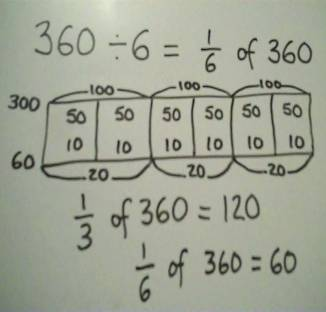 360 ÷ 6 = 1/6 of 360
100 100 100
300 50 50 50 50 50 50
60 10 10 10 10 10 10
20 20 20
1/3 of 360 = 120
1/6 of 360 = 60